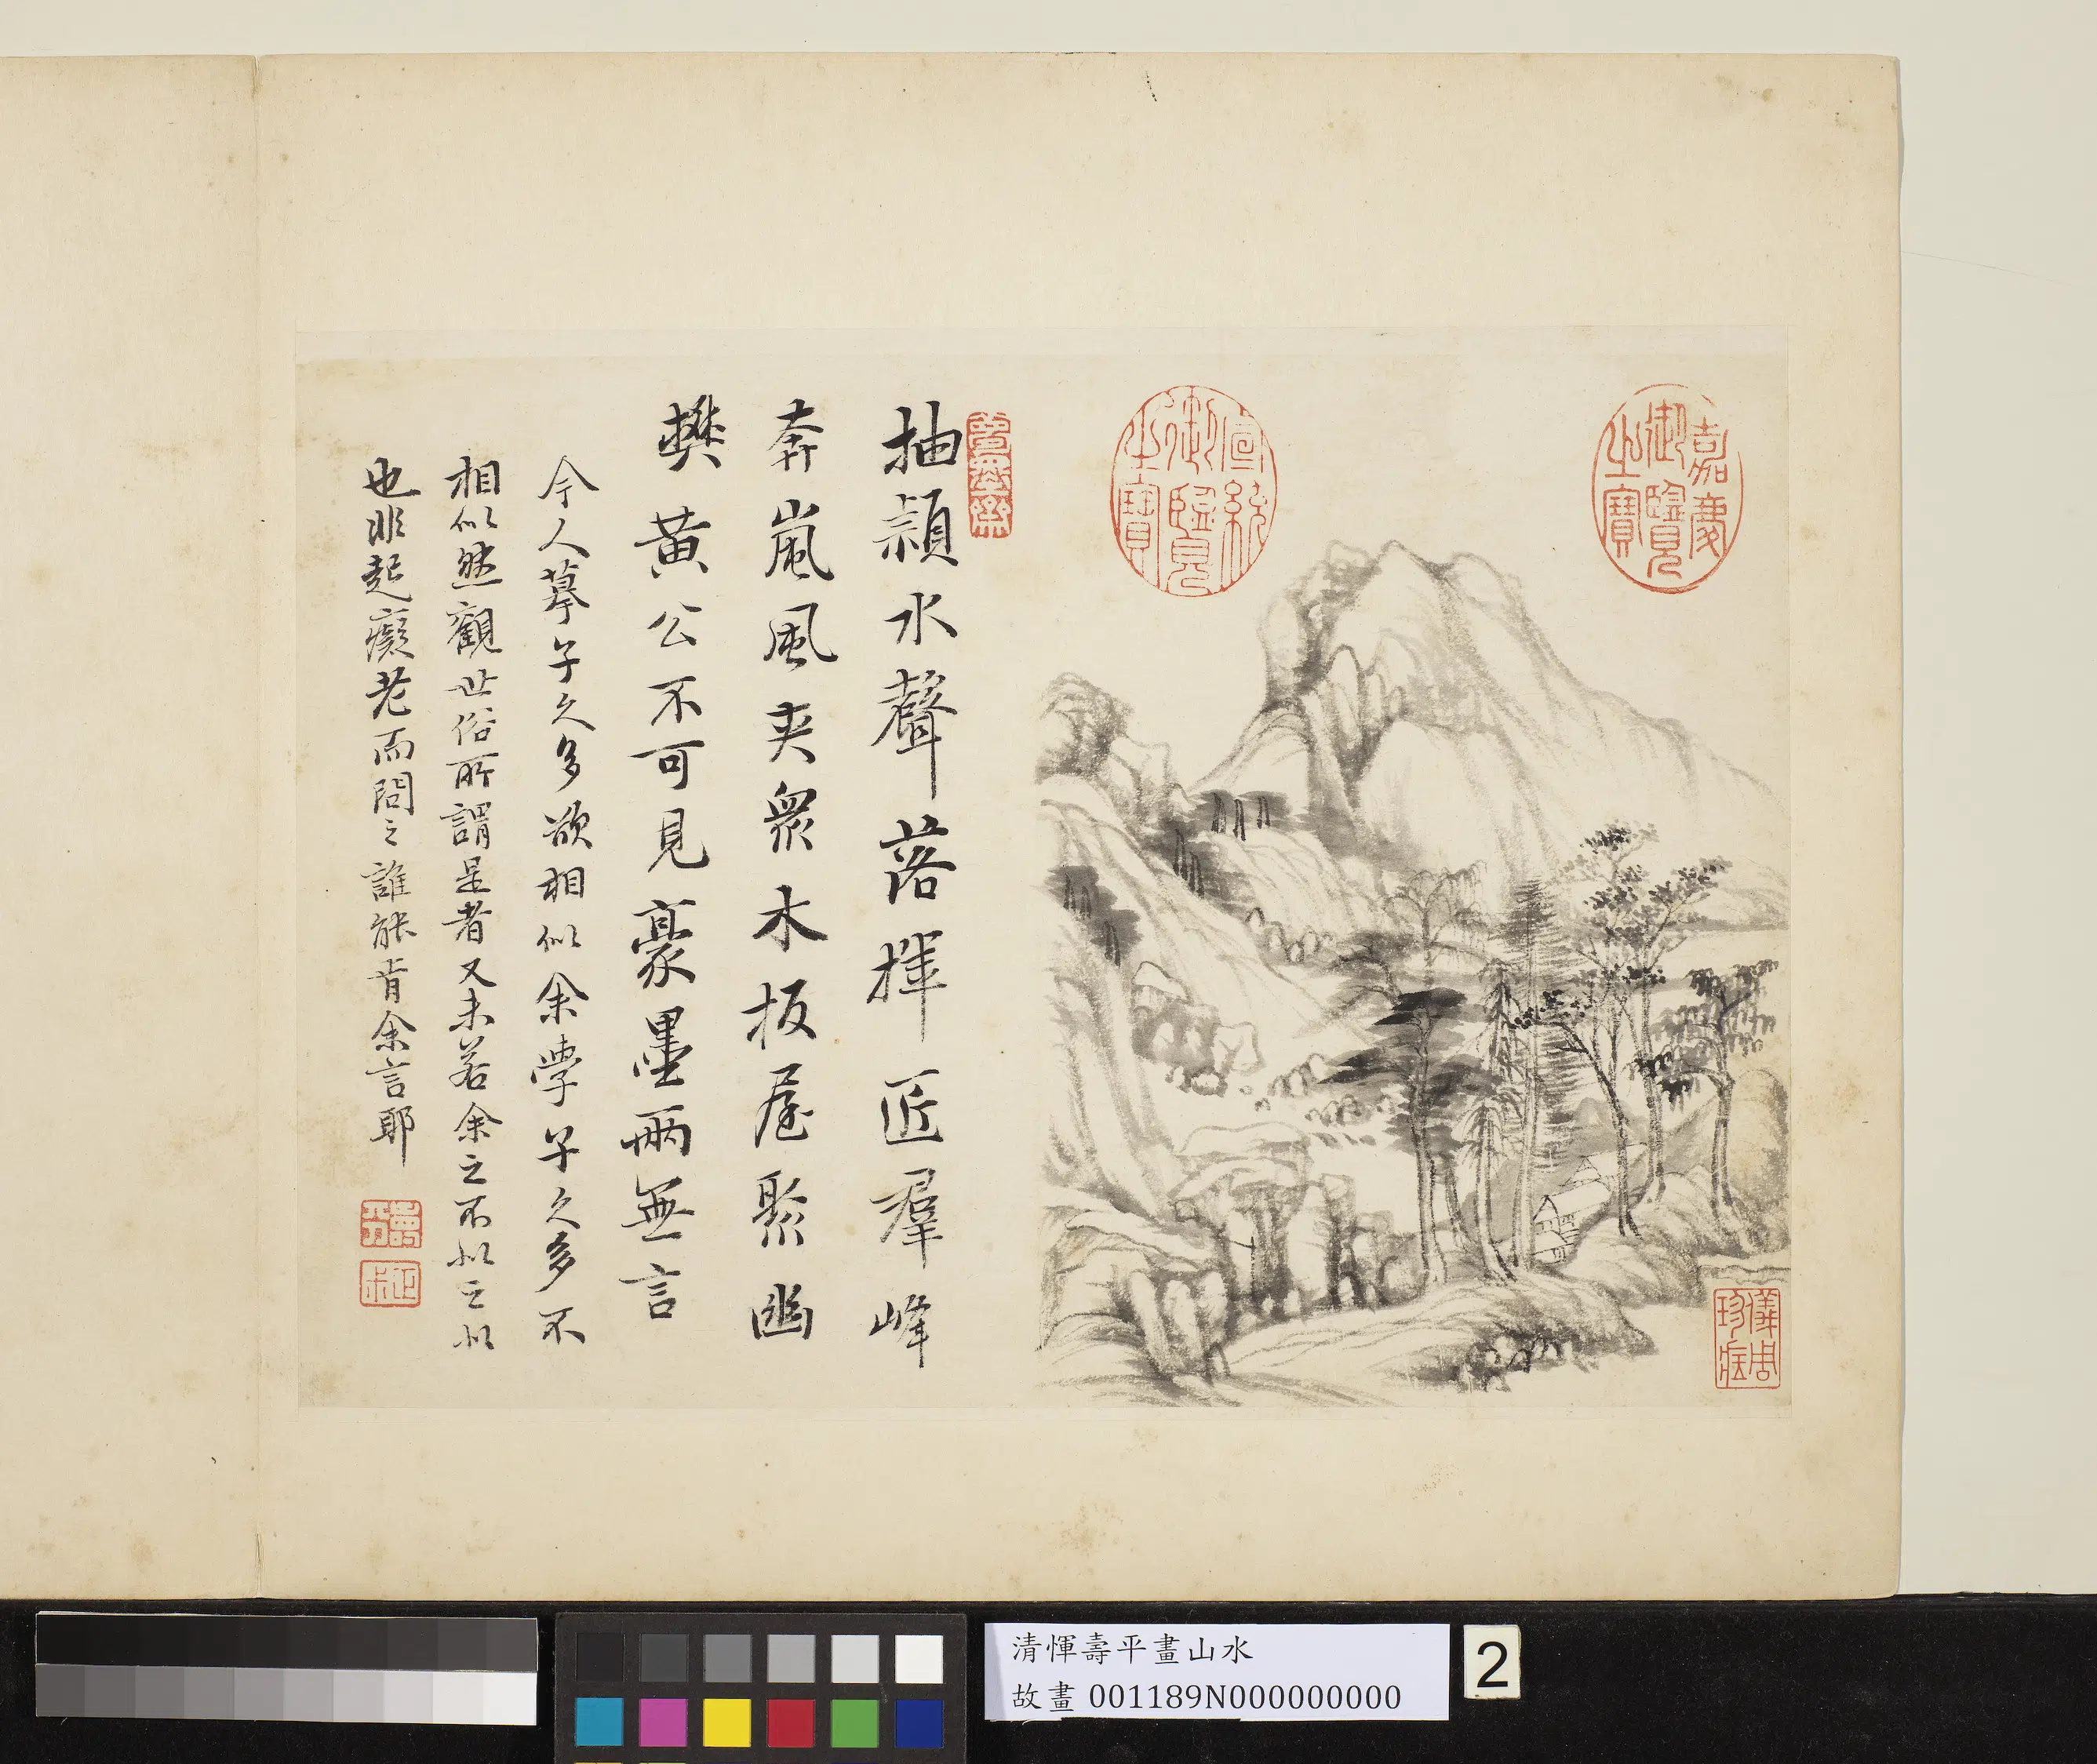 嘉慶御覽之寶
宣統御覽之寶
儀周珍藏
抽潁水聲落揮匠羣峰
奔嵐風夾衆木板屋聚幽
樊黃公不可見豪墨兩無言
今人摹子久多欲相似余學子久多不
相似然觀世俗所謂是者又未若余之不似之似
也非起癡老而問之誰能肯余言耶
壽平
清惲壽平畫山水
故畫 001189N000000000
2